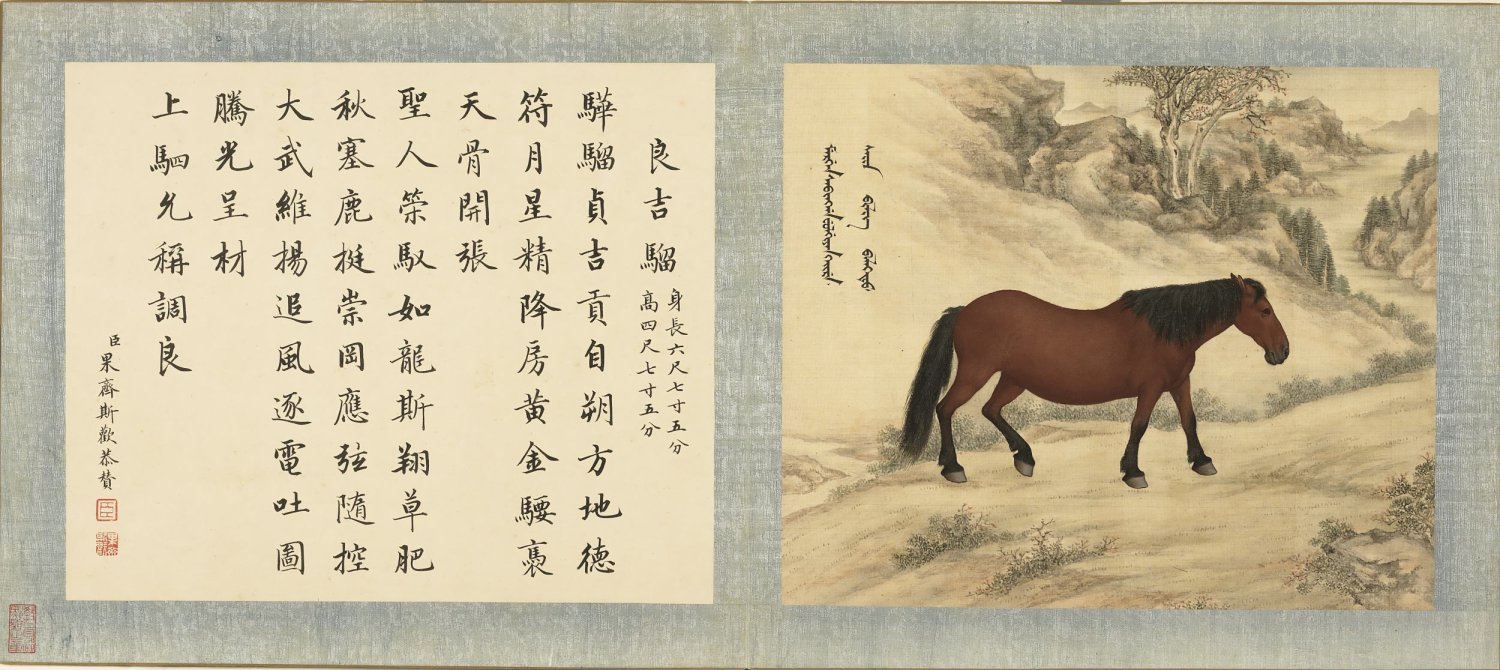 良吉騮 身長六尺七寸五分
高四尺七寸五分
驊騮貞吉貢自朔方地德
符月星精降房黃金騕褭
天骨開張
聖人䇿馭如龍斯翔草肥
秋塞鹿挺崇岡應弦隨控
大武維揚追風逐電吐圖
騰光呈材
上駟允稱調良
臣果齊斯歡恭贊